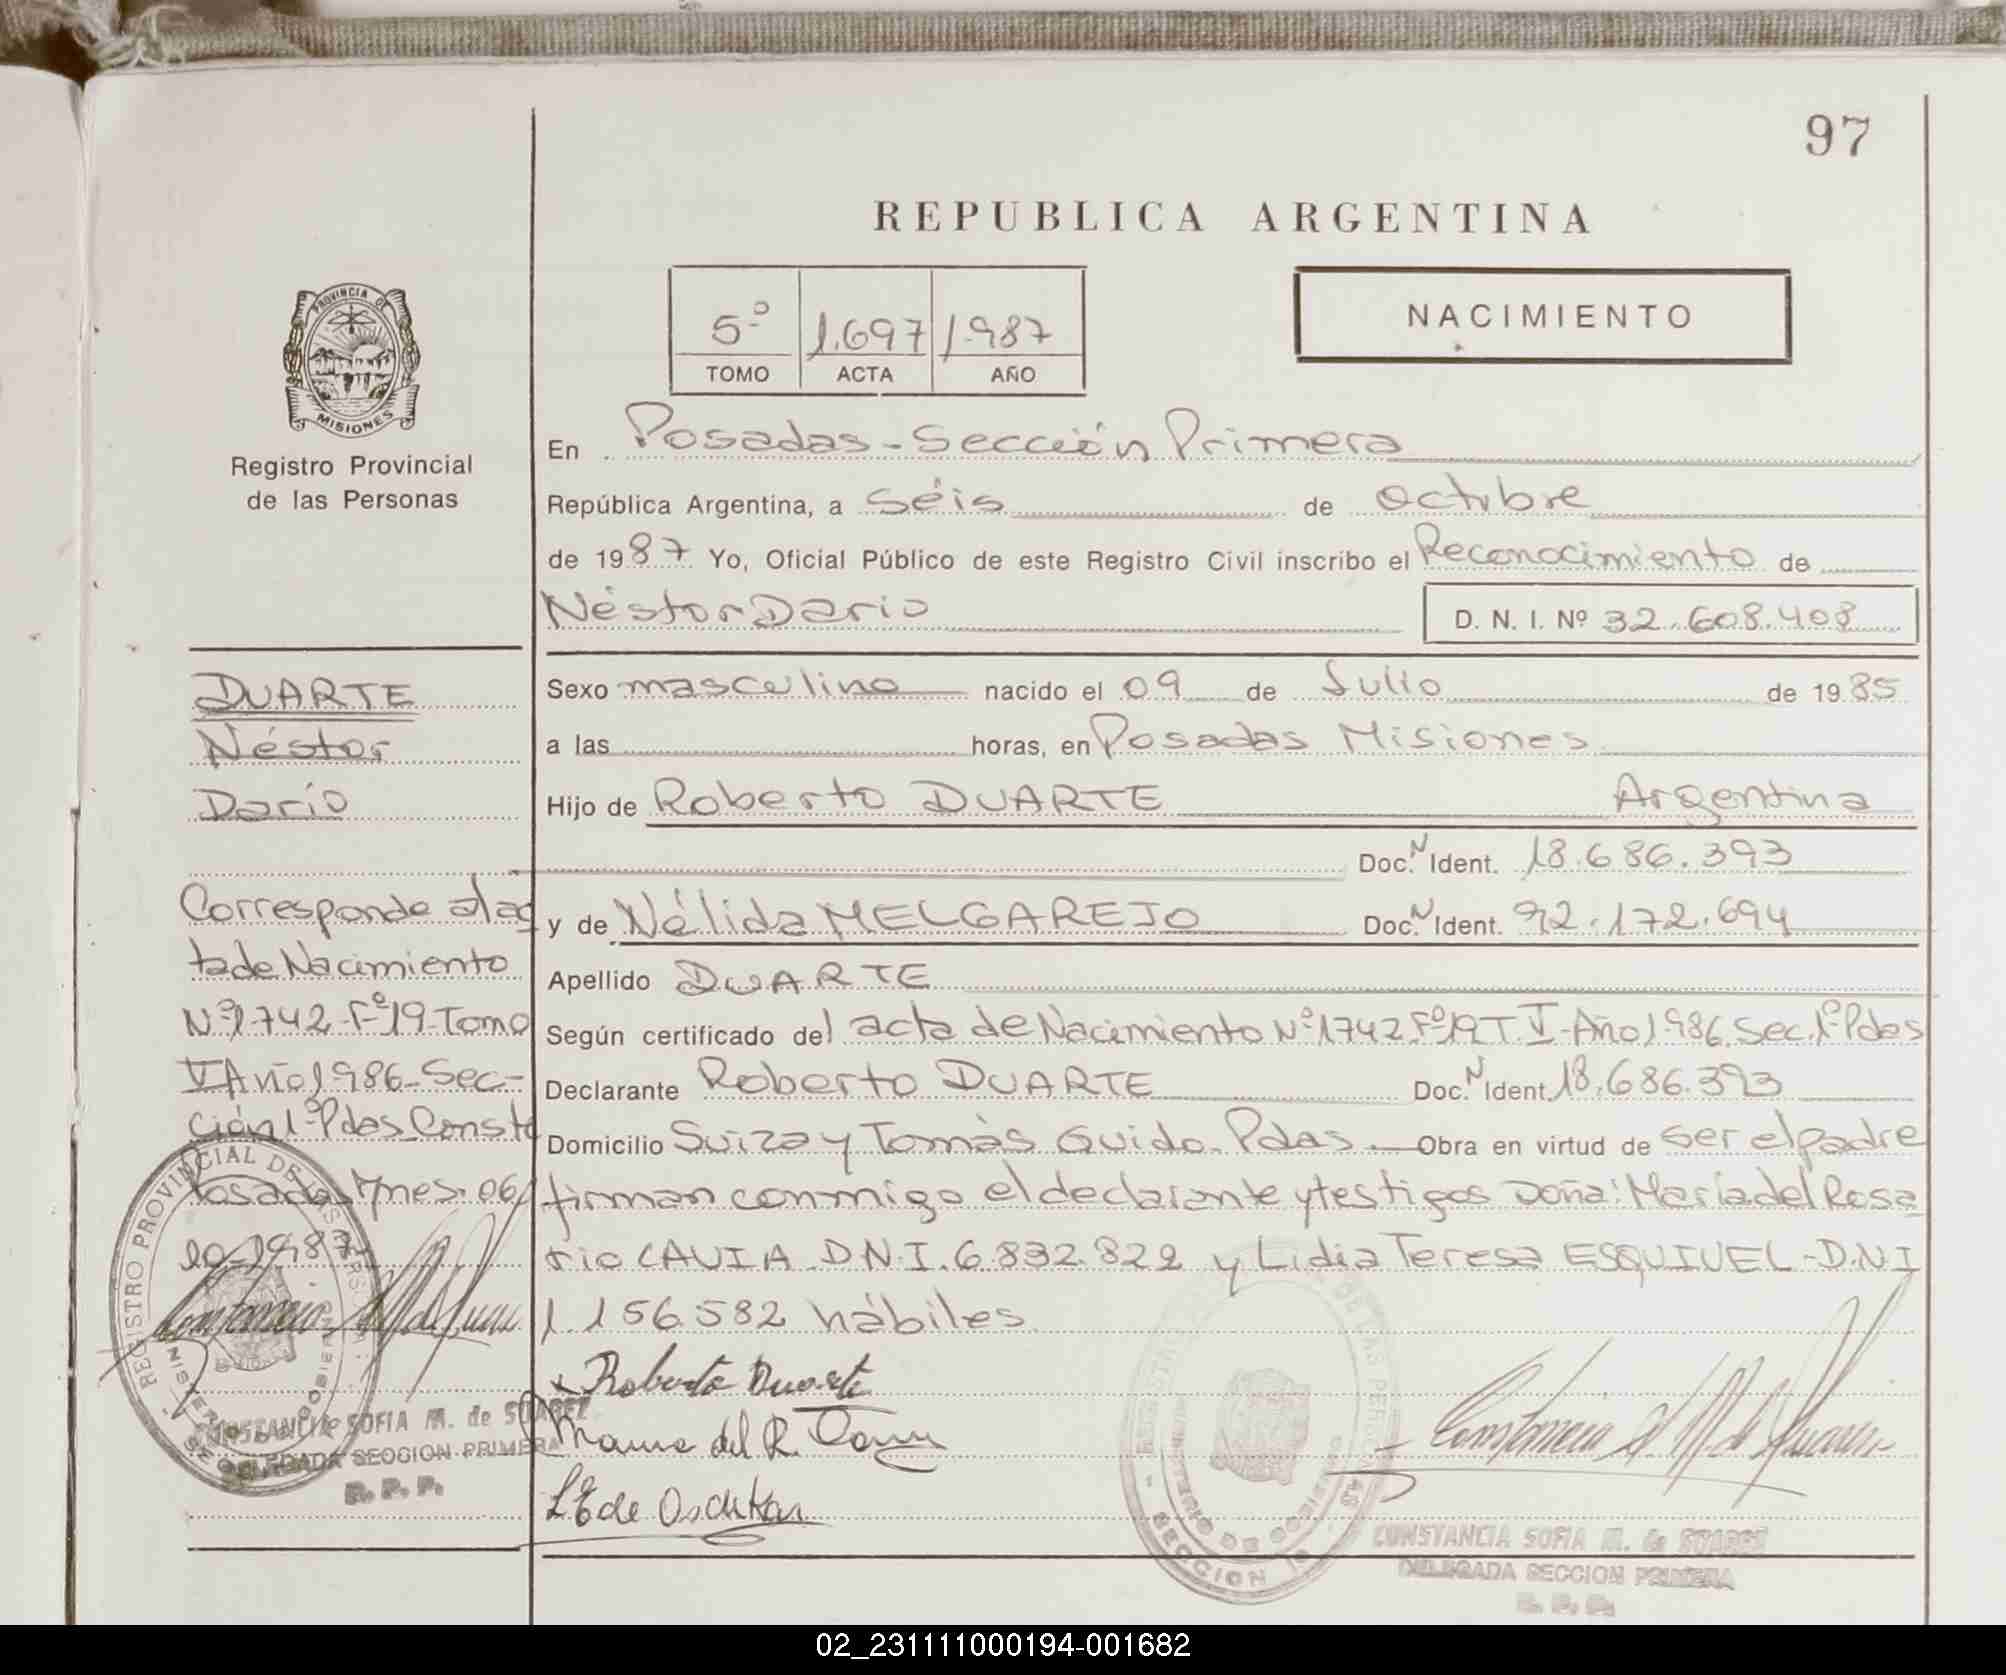 97
REPUBLICA ARGENTINA
5º 1.697 1.987
TOMO ACTA AÑO
NACIMIENTO
PROVINCIA DE
MISIONES
Registro Provincial
de las Personas
En Posadas - Sección Primera
República Argentina, a Séis de octubre
de 1987 Yo, Oficial Público de este Registro Civil inscribo el Reconocimiento de
Néstor Dario
D. N. I. Nº 32.608.408
Sexo masculino nacido el 09 de Julio de 1985
a las horas, en Posadas Misiones
Hijo de Roberto DUARTE Argentina
Doc. N Ident. 18.686.393
y de Nélida MELGAREJO Doc. N Ident. 92.172.694
Apellido DUARTE
Según certificado del acta de Nacimiento Nº 1742 Fº 19 T. V - Año 1986. Sec. 1º Pdas
Declarante Roberto DUARTE Doc. N Ident. 18.686.393
Domicilio Suiza y Tomás Guido. Pdas. Obra en virtud de ser el padre
firman conmigo el declarante y testigos Doña: María del Rosa
rio CAVIA D.N.I. 6.832.822 y Lidia Teresa ESQUIVEL - D.N.I
1.156.582 hábiles.
Roberto Duarte
DUARTE
Néstor
Darío
Corresponde al ac
ta de Nacimiento
Nº 1.742 - Fº 19 - Tomo
V Año 1.986 - Sec-
ción 1º Pdas. Conste
Posadas Mnes. 06/
10-1987
REGISTRO PROVINCIAL DE LAS PERSONAS
MINISTERIO DE GOBIERNO
CONSTANCIA SOFIA M. de SUAREZ
DELEGADA SECCION PRIMERA
R. P. P.
REGISTRO PROVINCIAL DE LAS PERSONAS
MINISTERIO DE GOBIERNO
SECCION 1º
CONSTANCIA SOFIA M. de SUAREZ
DELEGADA SECCION PRIMERA
R. P. P.
02_231111000194-001682